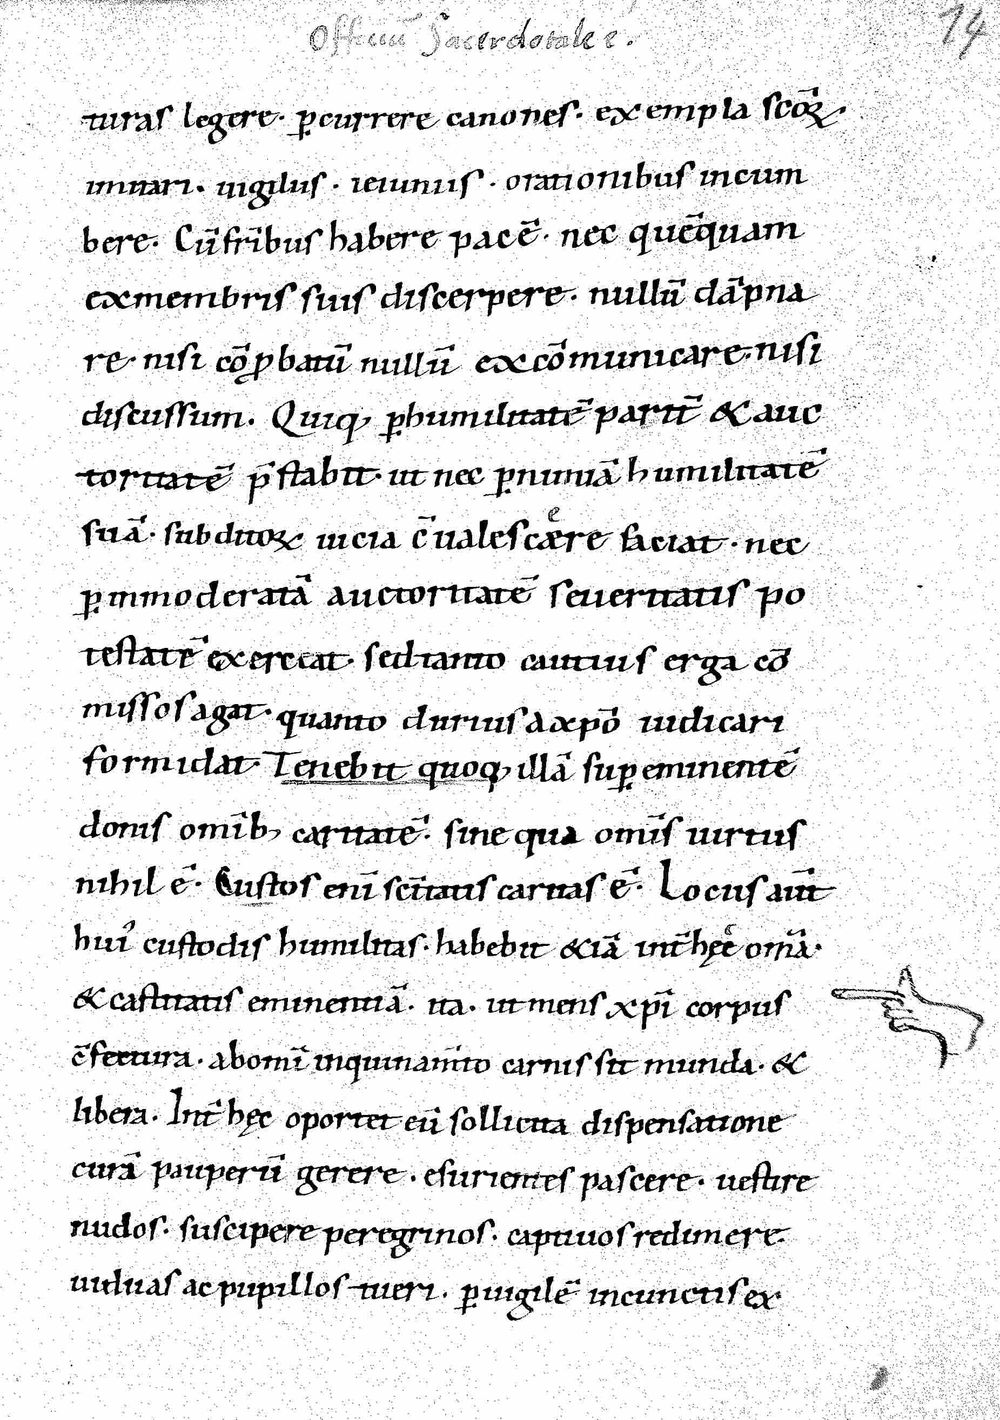 Officiũ Sacerdotale.
14
turas legere· ꝑcurrere canones· exempla scõꝝ·
imitari· uigiliis· ieiuniis· orationibus incum
bere· Cũ frĩbus habere pacẽ· nec quẽquam
ex membris suis discerpere· nullũ dãpna
re· nisi cõꝓbatũ nullũ excõmunicare· nisi
discussum. Quiqꝫ ꝑ humilitatẽ parit̃ & auc
toritatẽ p̃stabit· ut nec ꝑ nimiã humilitatẽ
suã· subditoꝝ uicia c̃ualescæ̊re faciat· nec
ꝑ immoderatã auctoritatẽ seueritatis po
testatẽ exerceat· sed tanto cautius erga cõ
missos agat· quanto durius a xpõ iudicari
formidat· Tenebit quoqꝫ illã suꝑeminentẽ
donis omĩbꝫ caritatẽ· sine qua omĩs uirtus
nihil ẽ· Custos enĩ sc̃itatis caritas ẽ· Locus aut̃
huiꝰ custodis humilitas· habebit &iã int̃ hęc omĩa·
& castitatis eminentiã· ita· ut mens xp̃i corpus
c̃fectura· ab omĩ inquinam̃to carnis sit munda· &
libera. Int̃ hęc oportet eũ sollicita dispensatione
curã pauperũ gerere· esurientes pascere· uestire
nudos· suscipere peregrinos· captiuos redimere·
uiduas ac pupillos tueri· ꝑuigilẽ in cunctis ex